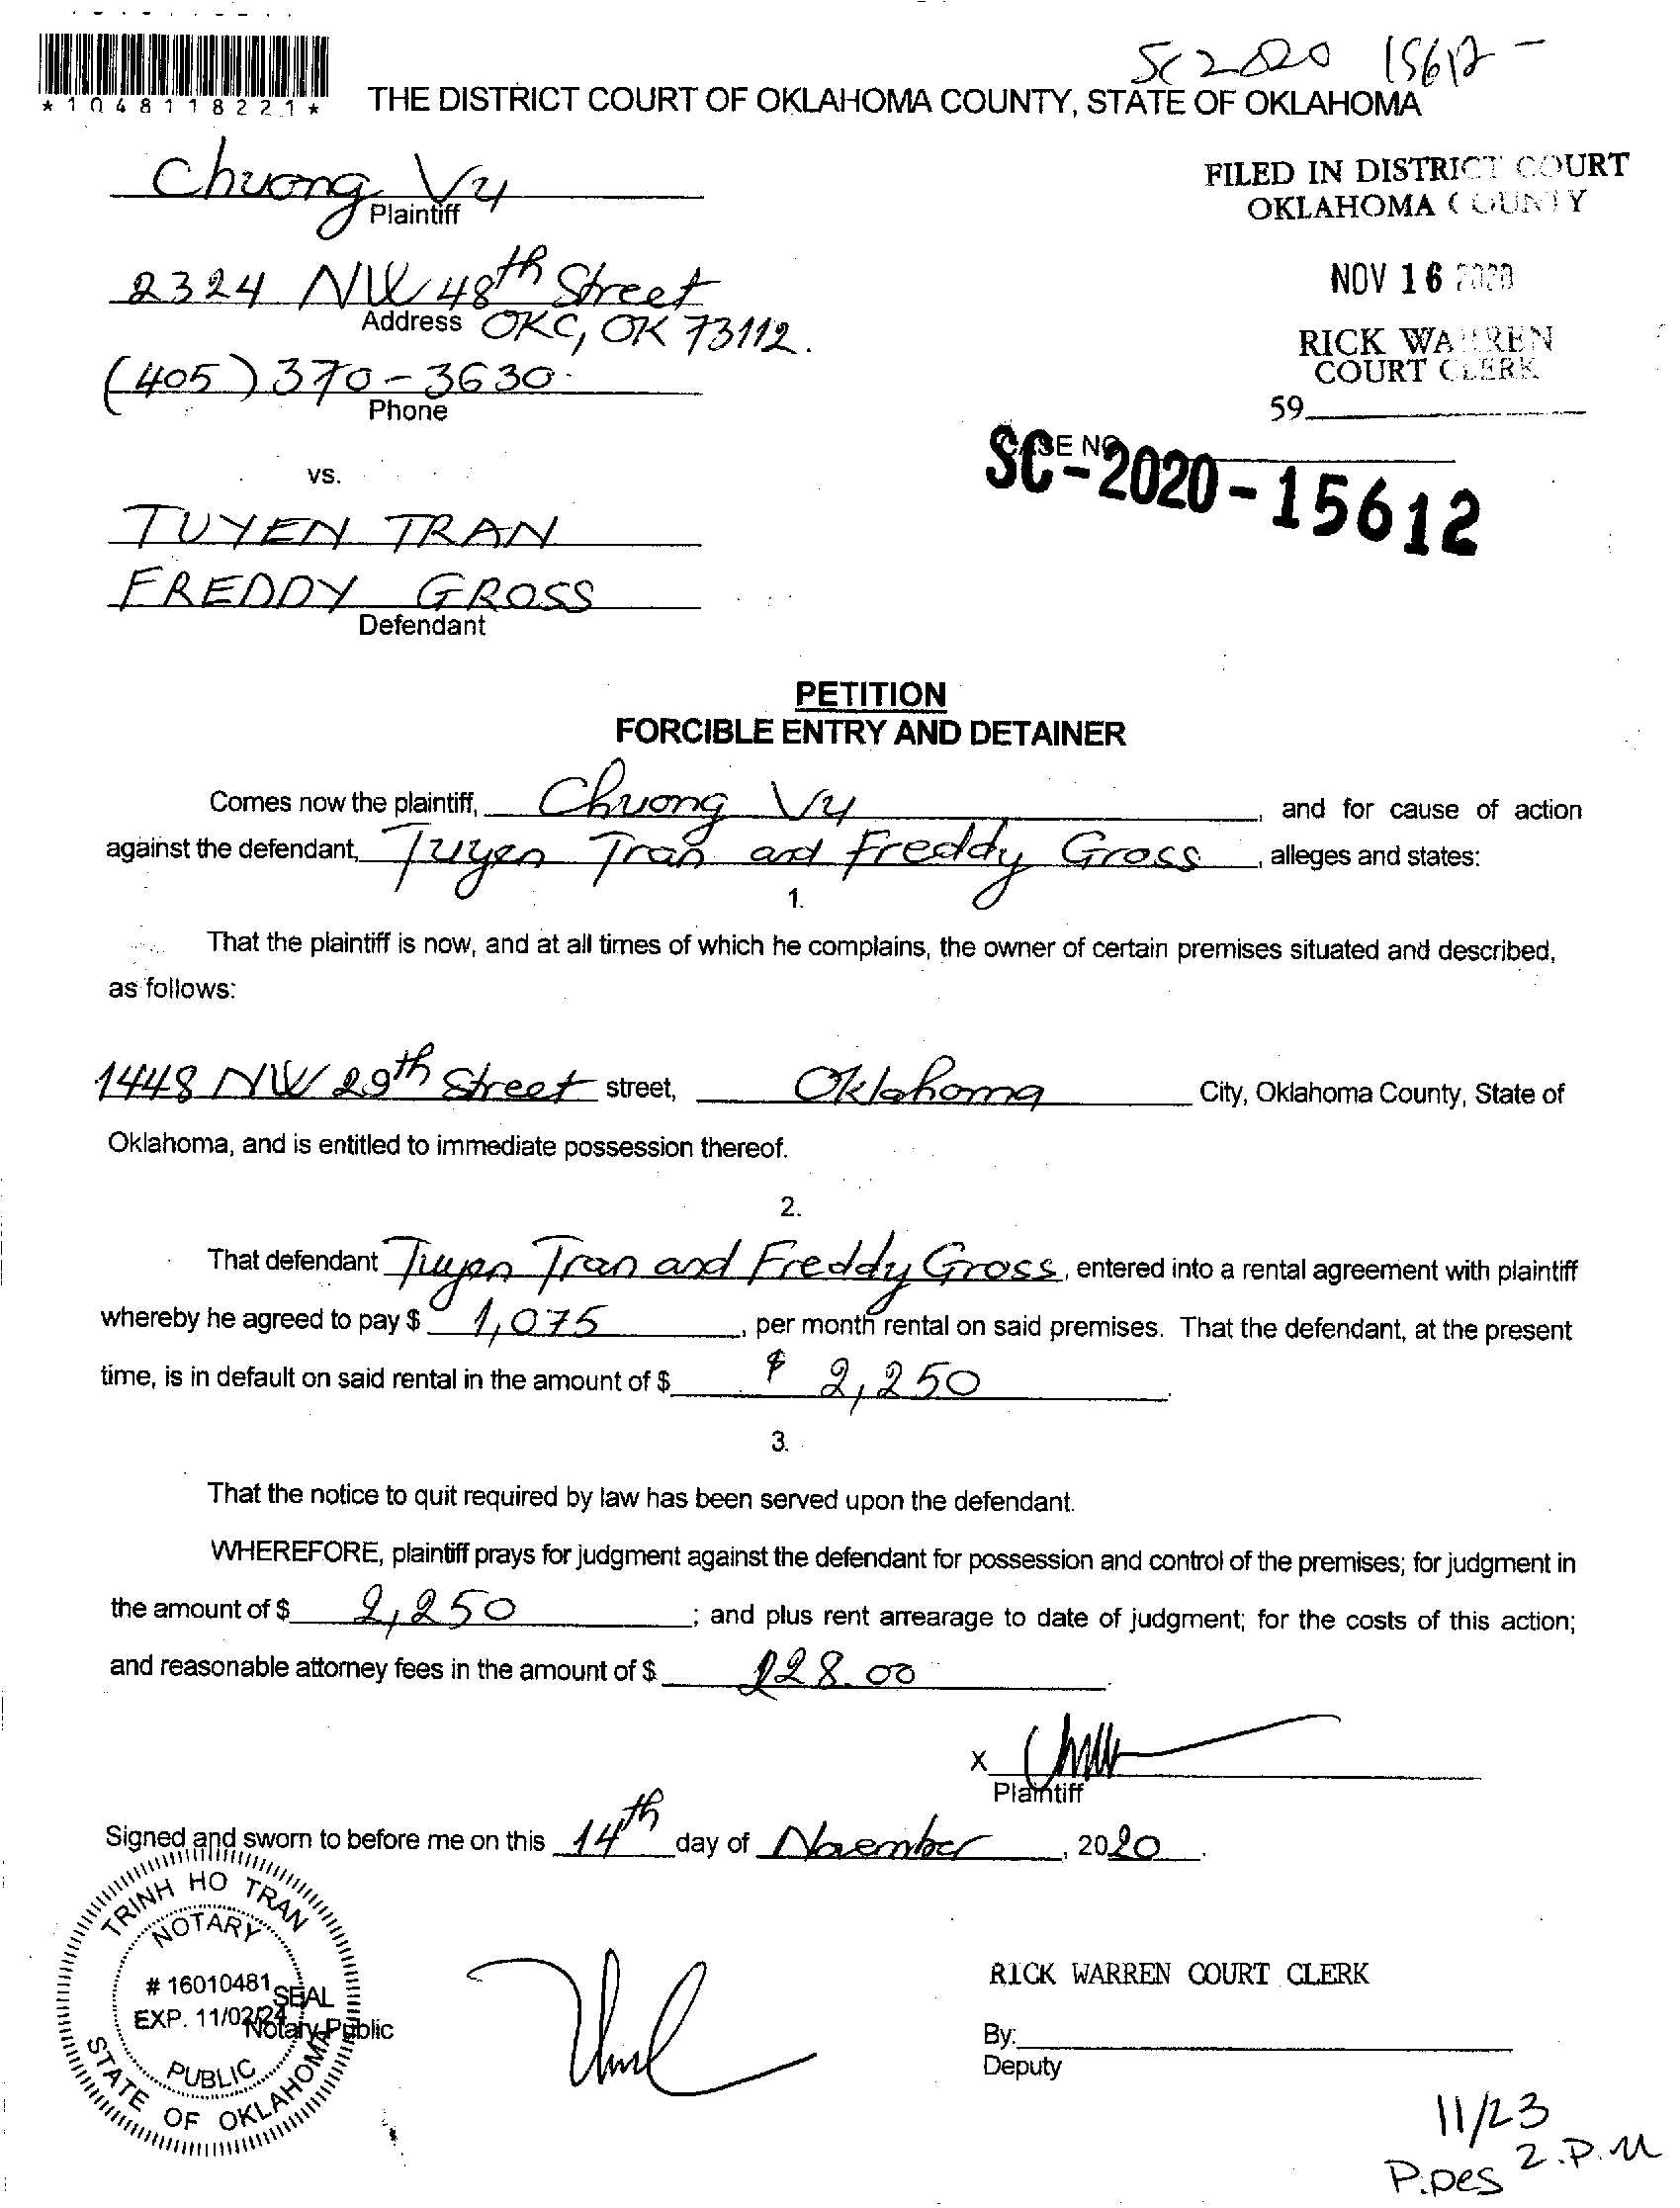 SC 2020 15612-
*1048118221*
THE DISTRICT COURT OF OKLAHOMA COUNTY, STATE OF OKLAHOMA
Chuong Vu
Plaintiff
FILED IN DISTRICT COURT
OKLAHOMA COUNTY
2324 NW 48th Street
Address OKC, OK 73112.
NOV 16 2020
RICK WARREN
COURT CLERK
(405) 370-3630
Phone
59
CASE NO
SC-2020-15612
vs.
TUYEN TRAN
FREDDY GROSS
Defendant
PETITION
FORCIBLE ENTRY AND DETAINER
Comes now the plaintiff, Chuong Vu, and for cause of action
against the defendant, Tuyen Tran and Freddy Gross, alleges and states:
1.
That the plaintiff is now, and at all times of which he complains, the owner of certain premises situated and described,
as follows:
1448 NW 29th Street street, Oklahoma City, Oklahoma County, State of
Oklahoma, and is entitled to immediate possession thereof.
2.
That defendant Tuyen Tran and Freddy Gross, entered into a rental agreement with plaintiff
whereby he agreed to pay $ 1,075, per month rental on said premises. That the defendant, at the present
time, is in default on said rental in the amount of $ $ 2,250.
3.
That the notice to quit required by law has been served upon the defendant.
WHEREFORE, plaintiff prays for judgment against the defendant for possession and control of the premises; for judgment in
the amount of $ 2,250; and plus rent arrearage to date of judgment; for the costs of this action;
and reasonable attorney fees in the amount of $ 228.00.
X
Plaintiff
Signed and sworn to before me on this 14th day of November, 2020.
TRINH HO TRAN
NOTARY
# 16010481
SEAL
EXP. 11/02/24
Notary Public
PUBLIC
STATE OF OKLAHOMA
RICK WARREN COURT CLERK
By:
Deputy
11/23
2.P.M